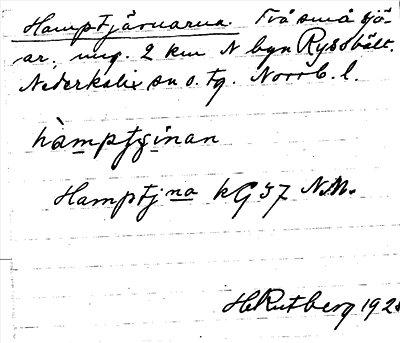 Hamptjärnarna. Två små sjö-
ar, ung. 2 km N byn Ryssbält.
Nederkalix sn o. tg. Norrb. l.
hàmptjẹnan
Hamptjna kG 37 N.M.
H Rutberg 192